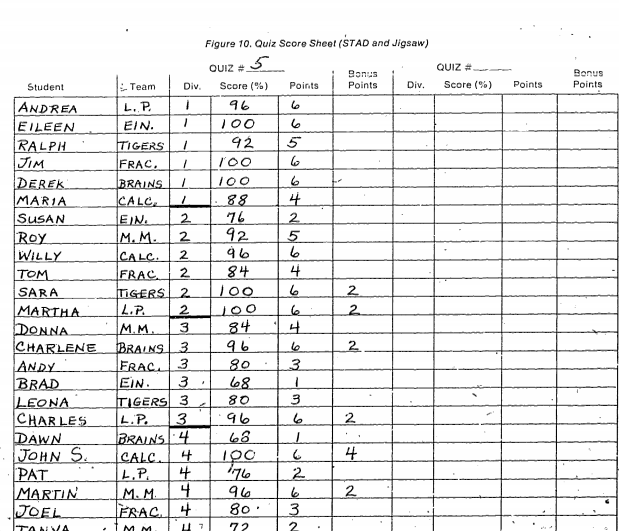 Figure 10. Quiz Score Sheet (STAD and Jigsaw)
QUIZ # 5 QUIZ #
Student Team Div. Score (%) Points Bonus Points Div. Score (%) Points Bonus Points
ANDREA L.P. 1 96 6
EILEEN EIN. 1 100 6
RALPH TIGERS 1 92 5
JIM FRAC. 1 100 6
DEREK BRAINS 1 100 6
MARIA CALC. 1 88 4
SUSAN EIN. 2 76 2
ROY M.M. 2 92 5
WILLY CALC. 2 96 6
TOM FRAC. 2 84 4
SARA TIGERS 2 100 6 2
MARTHA L.P. 2 100 6 2
DONNA M.M. 3 84 4
CHARLENE BRAINS 3 96 6 2
ANDY FRAC. 3 80 3
BRAD EIN. 3 68 1
LEONA TIGERS 3 80 3
CHARLES L.P. 3 96 6 2
DAWN BRAINS 4 68 1
JOHN S. CALC. 4 100 6 4
PAT L.P. 4 76 2
MARTIN M.M. 4 96 6 2
JOEL FRAC. 4 80 3
TANYA M.M. 4 72 2